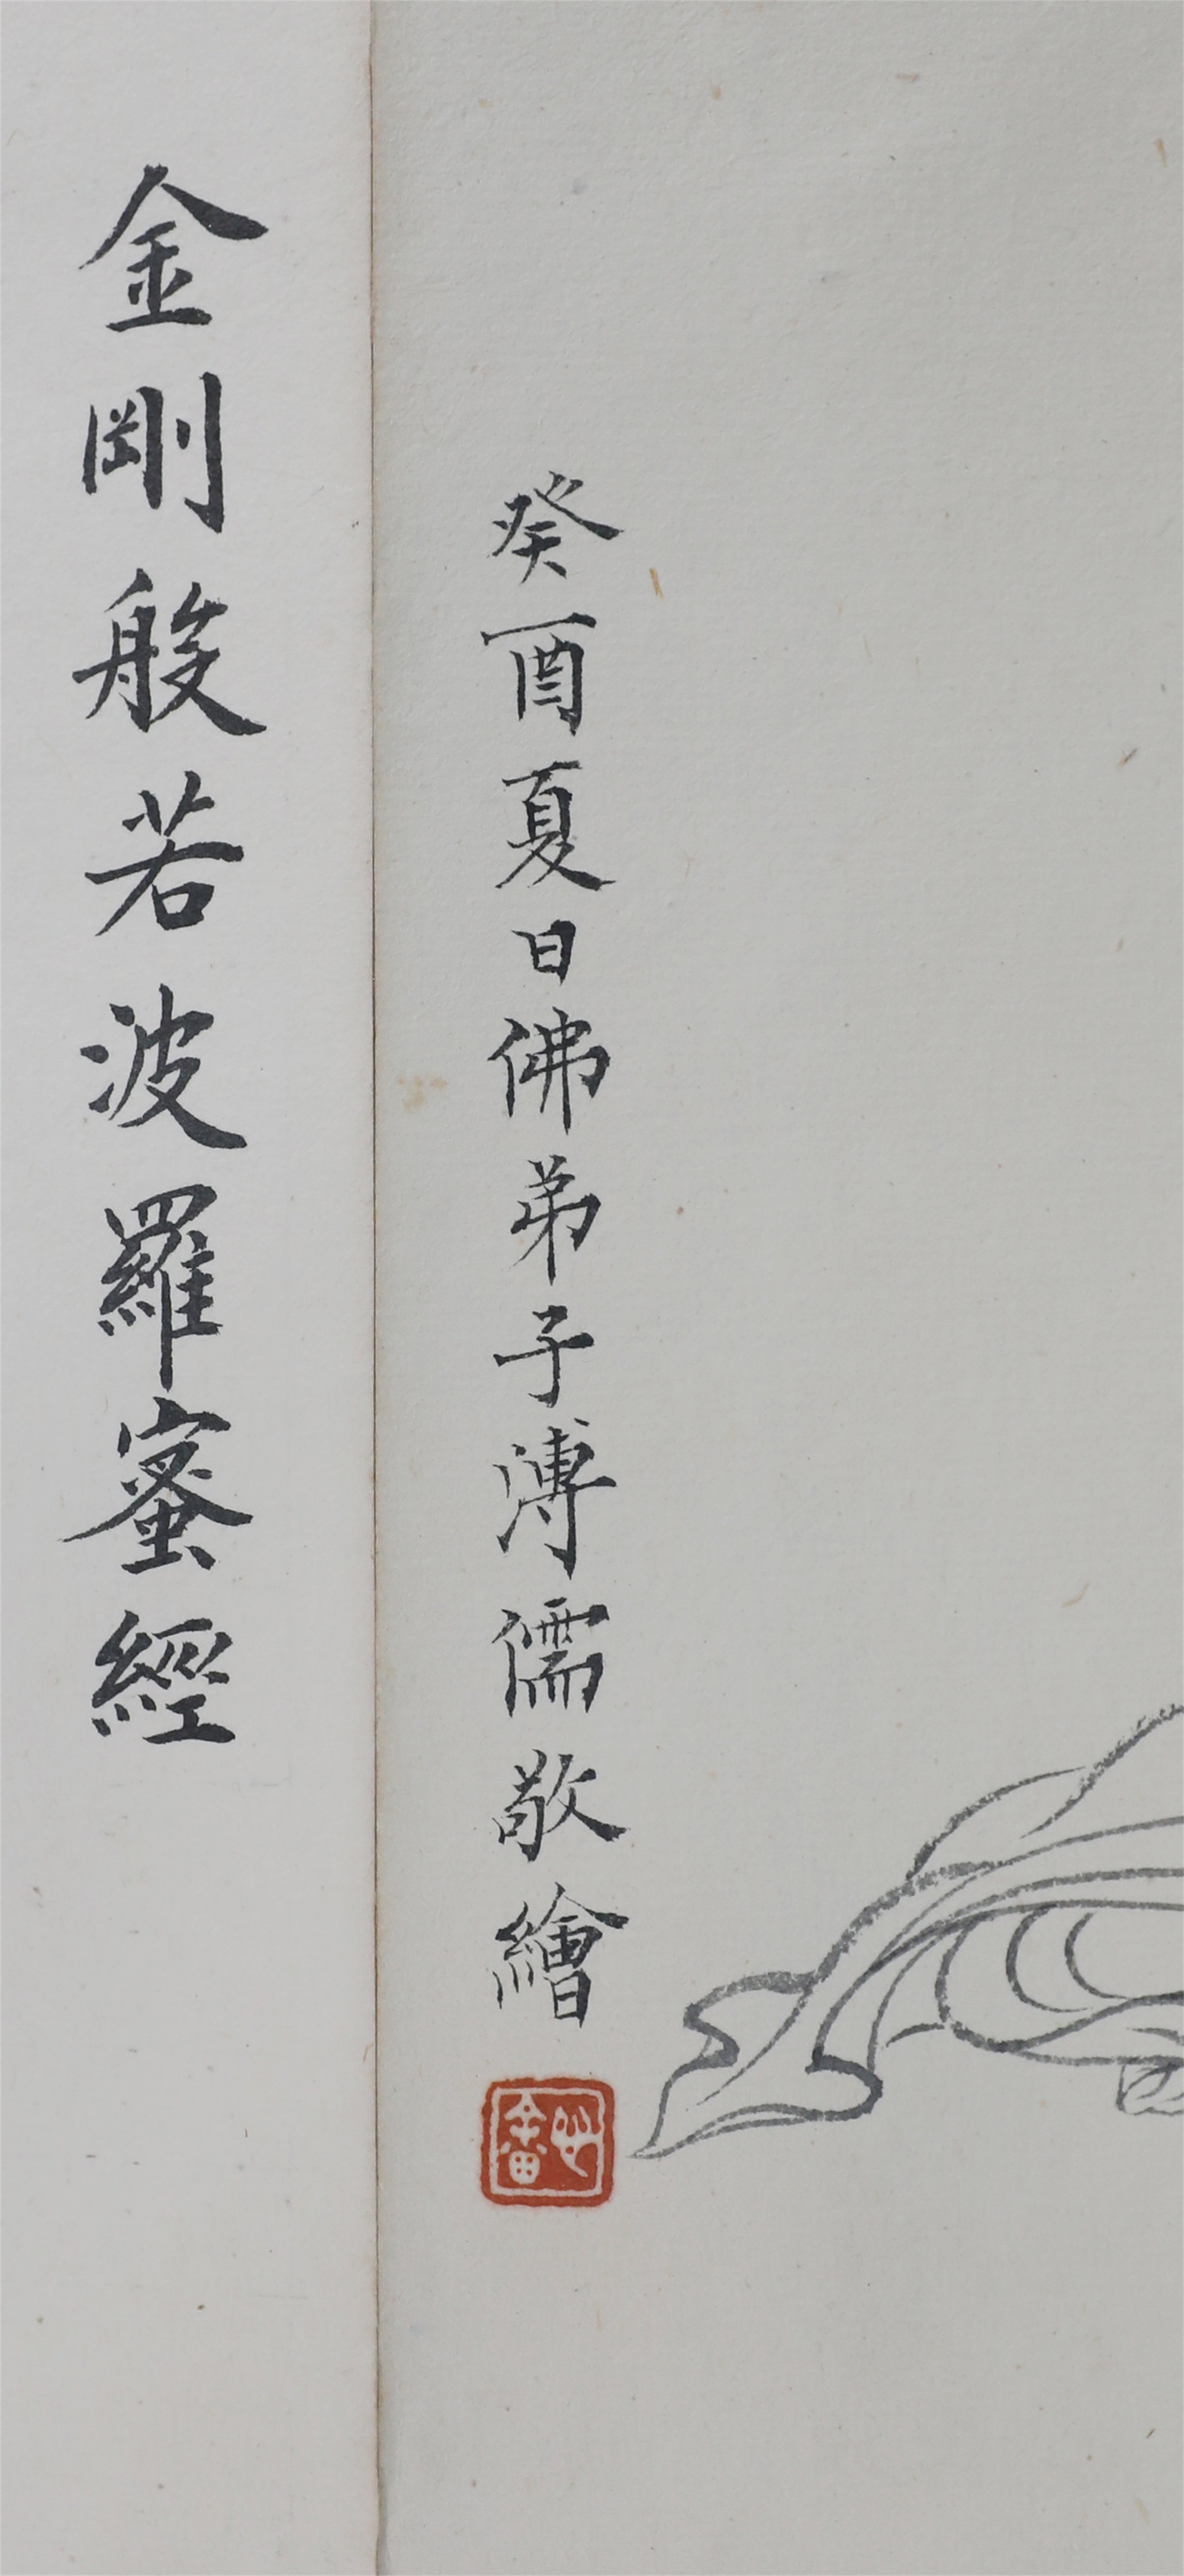 癸酉夏日佛弟子溥儒敬繪
金剛般若波羅蜜經